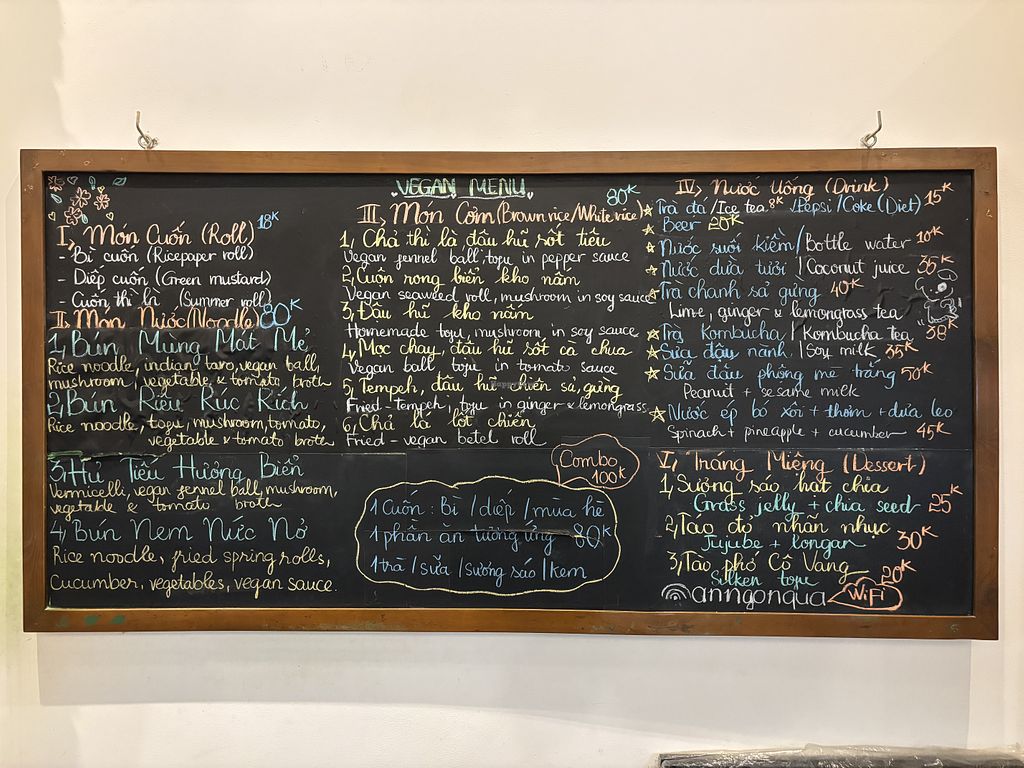 VEGAN MENU
I, Món Cuốn (Roll) 18K
- Bì cuốn (Ricepaper roll)
- Diếp cuốn (Green mustard)
- Cuốn thì là (Summer roll)
II, Món Nước (Noodle) 80K
1, Bún Mùng Mát Mẻ
Rice noodle, indian taro, vegan ball,
mushroom, vegetable & tomato broth
2, Bún Riêu Rúc Rích
Rice noodle, tofu, mushroom, tomato,
vegetable & tomato broth
3, Hủ Tiếu Hướng Biển
Vermicelli, vegan fennel ball, mushroom,
vegetable & tomato broth
4, Bún Nem Nức Nở
Rice noodle, fried spring rolls,
Cucumber, vegetables, vegan sauce.
III, Món Cơm (Brown rice/White rice) 80K
1, Chả thì là đậu hũ sốt tiêu
Vegan fennel ball, tofu in pepper sauce
2, Cuốn rong biển kho nấm
Vegan seaweed roll, mushroom in soy sauce
3, Đậu hũ kho nấm
Homemade tofu, mushroom, in soy sauce
4, Mọc chay, đậu hũ sốt cà chua
Vegan ball, tofu in tomato sauce
5, Tempeh, đậu hũ chiên sả, gừng
Fried-tempeh, tofu in ginger & lemongrass
6, Chả lá lốt chiên
Fried-vegan betel roll
Combo
100K
1 Cuốn: Bì / diếp / mùa hè
1 phần ăn tương ứng 80K
1 trà / sữa / sương sáo / kem
IV, Nước Uống (Drink)
Trà đá / Ice tea 8K / Pepsi / Coke (Diet) 15K
Beer 20K
Nước suối kiềm / Bottle water 10K
Nước dừa tươi / Coconut juice 35K
Trà chanh sả gừng 40K
Lime, ginger & lemongrass tea
Trà Kombucha / Kombucha tea 38K
Sữa đậu nành / Soy milk 35K
Sữa đậu phộng mè trắng 50K
Peanut + sesame milk
Nước ép bó xôi + thơm + dưa leo
Spinach + pineapple + cucumber 45K
I, Tráng Miệng (Dessert)
1, Sương sáo hạt chia
Grass jelly + chia seed 25K
2, Táo đỏ nhãn nhục
Jujube + longan 30K
3, Tào phớ Cô Vàng
Silken tofu 20K
anngonqua WiFi